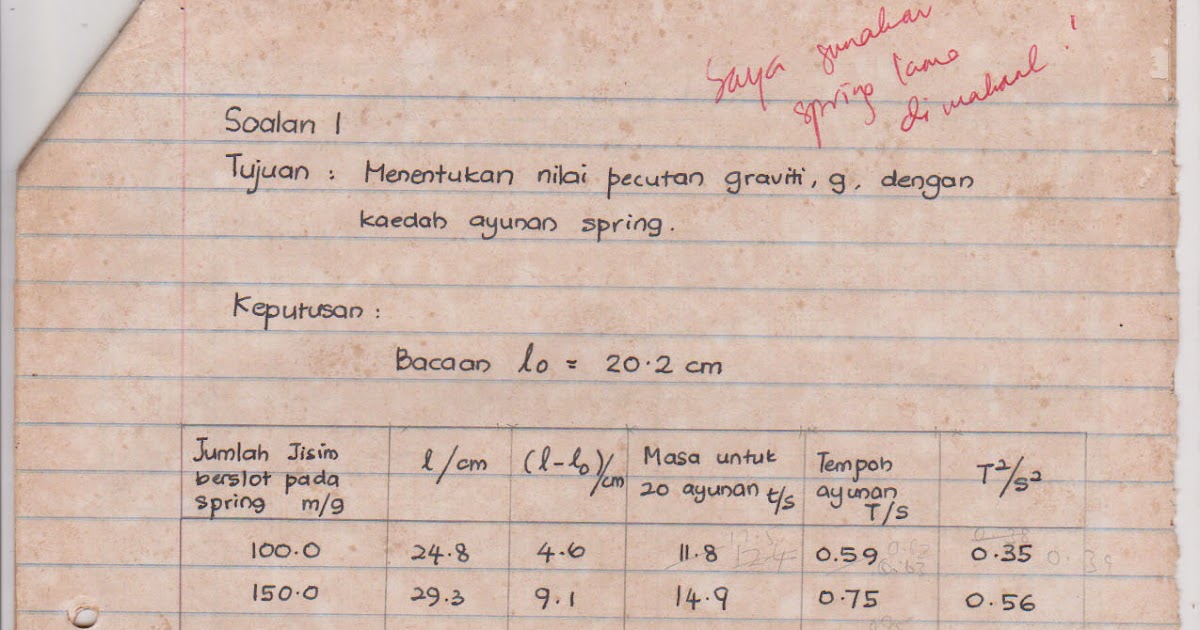 Saya gunakan
spring lama
di makmal !
Soalan 1
Tujuan : Menentukan nilai pecutan graviti, g, dengan
kaedah ayunan spring.
Keputusan :
Bacaan l₀ = 20.2 cm
Jumlah Jisim berslot pada spring m/g | l/cm | (l-l₀)/cm | Masa untuk 20 ayunan t/s | Tempoh ayunan T/s | T²/s²
100.0 | 24.8 | 4.6 | 11.8 | 0.59 | 0.35
150.0 | 29.3 | 9.1 | 14.9 | 0.75 | 0.56